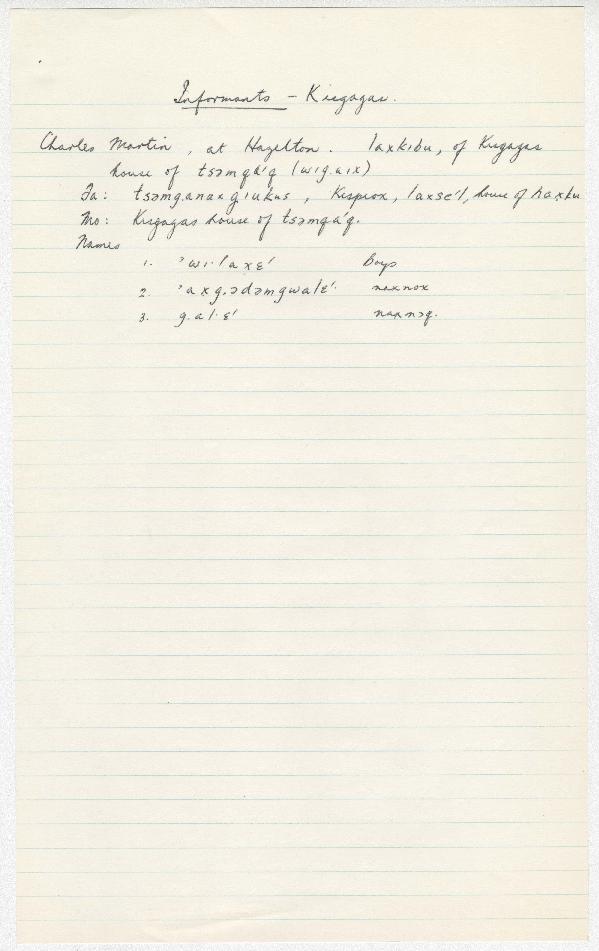 Informants - Kisgagas.
Charles Martin, at Hazelton. laxkıbu, of Kisgagas
house of tsəmqá'q (wıg.aıx)
Fa: tsəmganaxgıukus, Kispiox, laxse'l, house of haxku
Mo: Kisgagas house of tsəmqá'q.
Names
1. 'wı·laxɛ' boys
2. 'axg.ədəmgwalɛ'· naxnox
3. g.al·ɛ' naxnɔq.